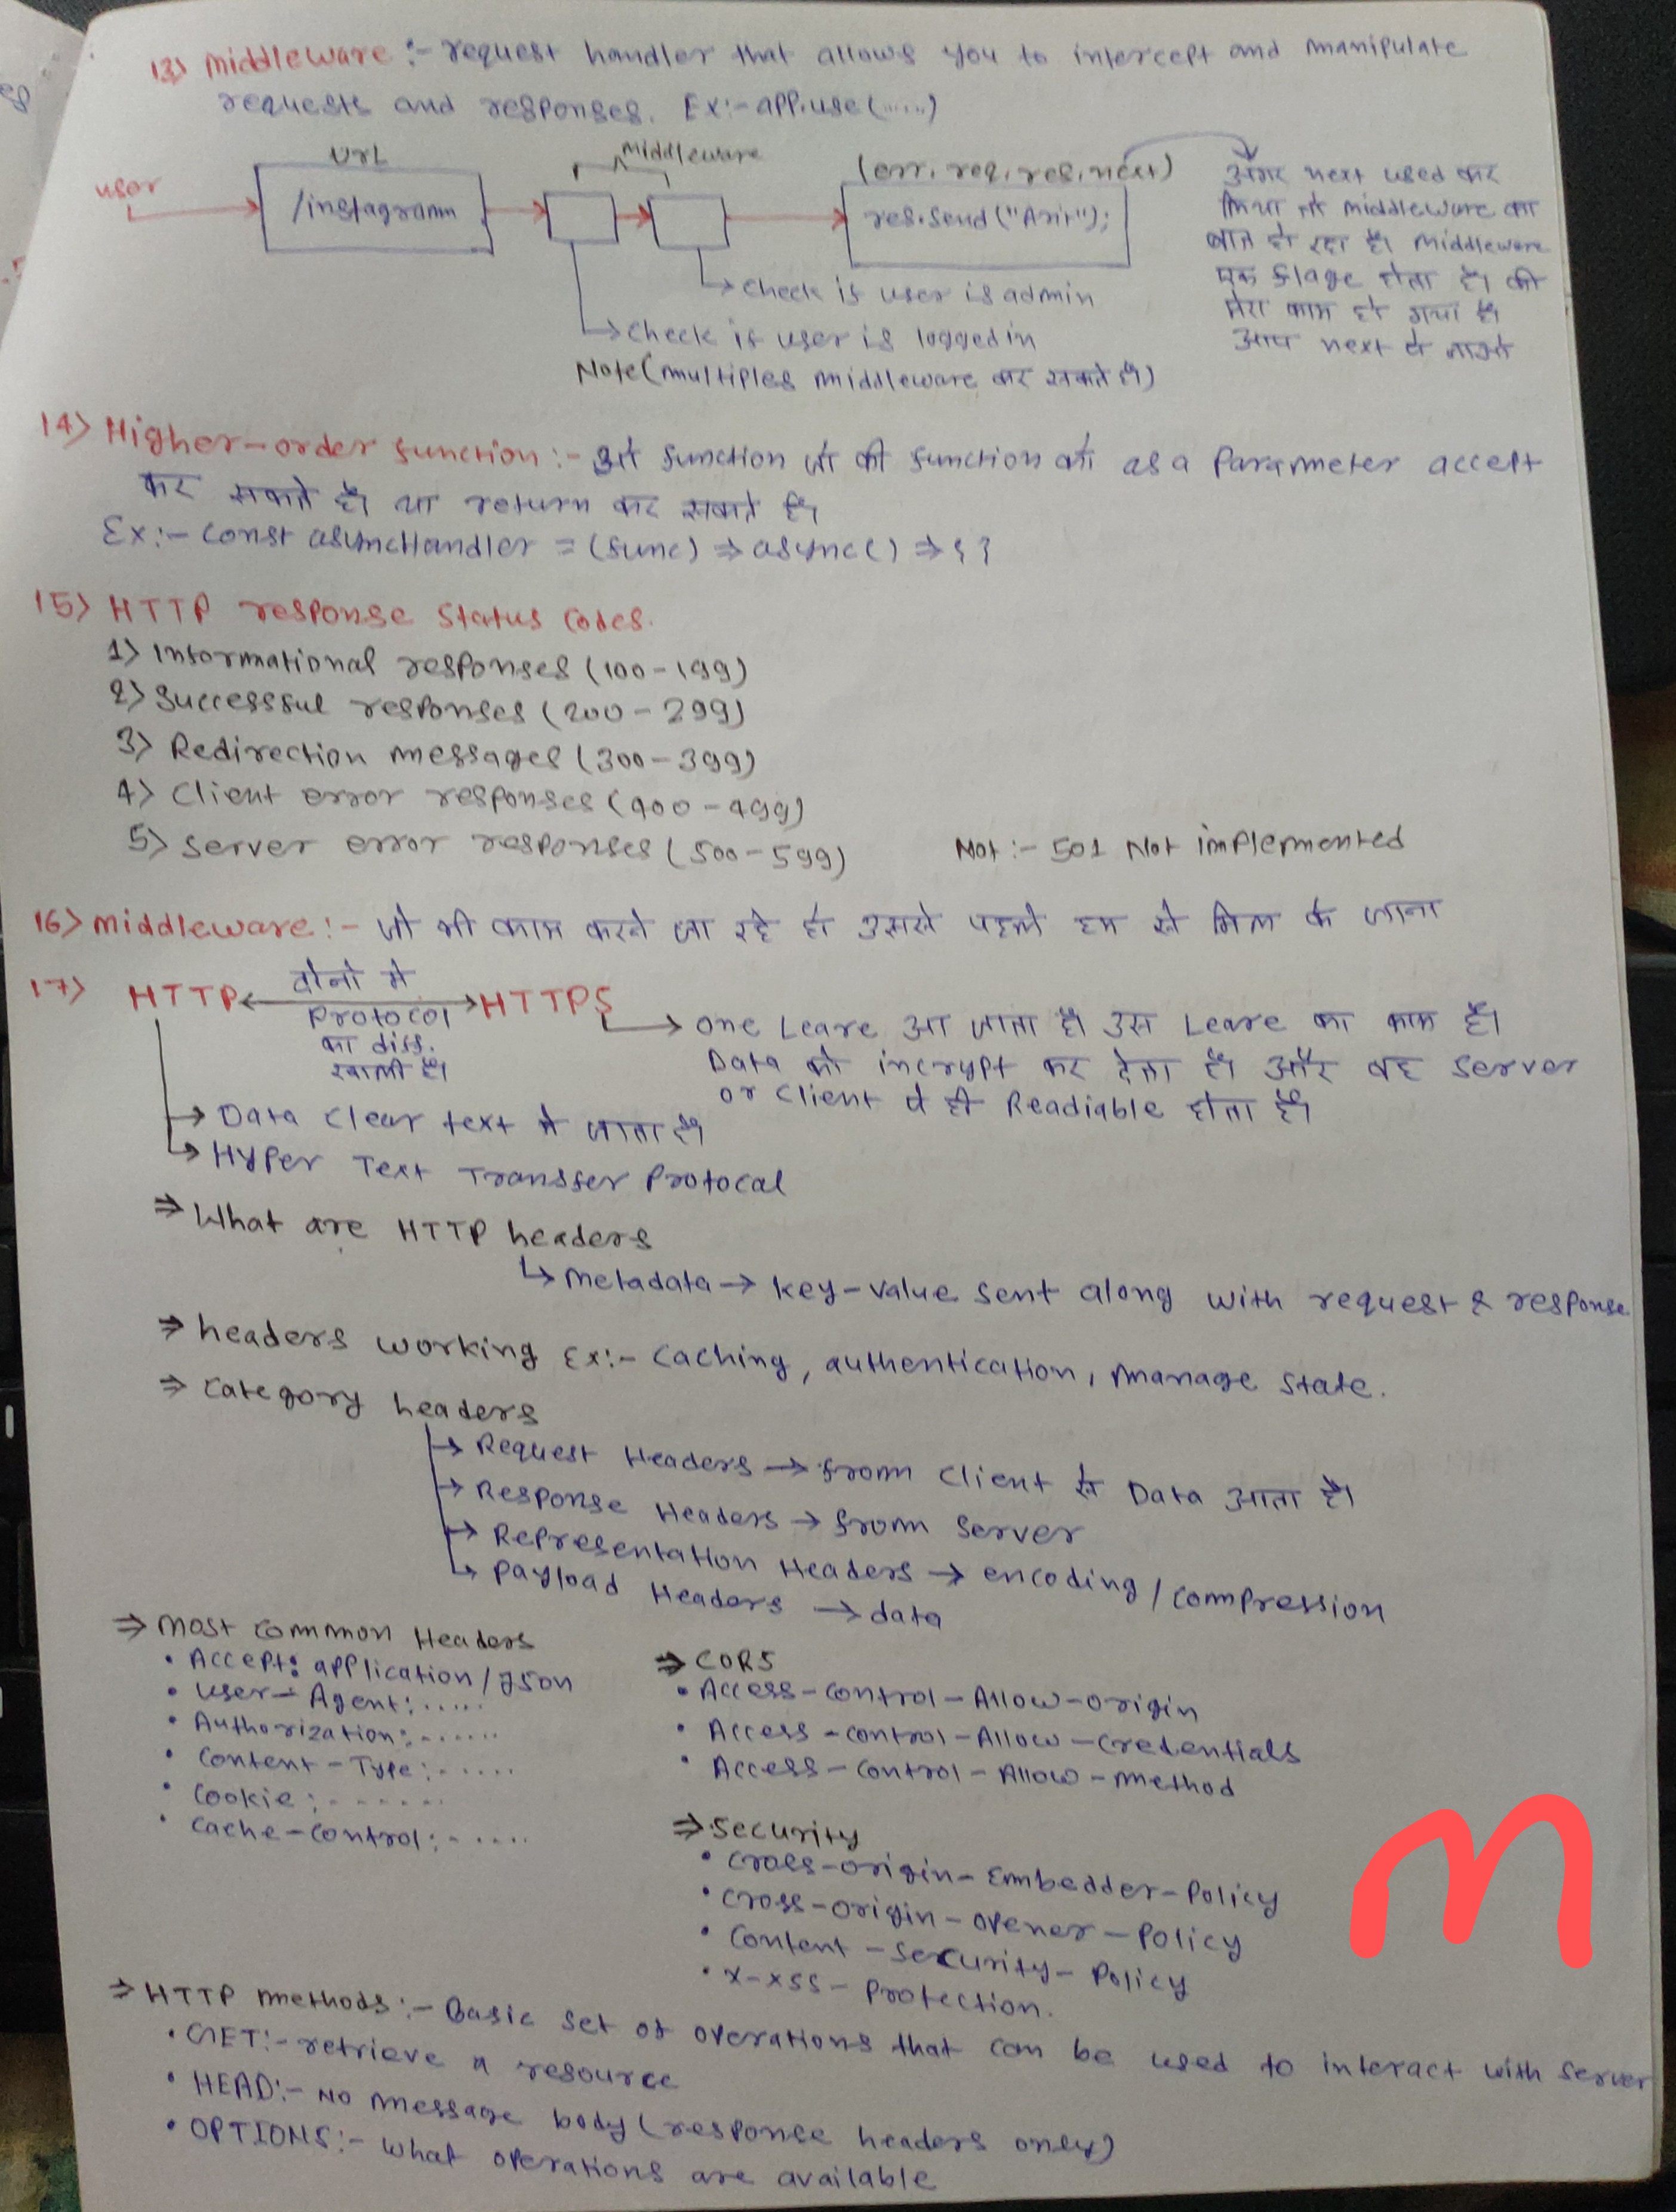 13> Middleware :- request handler that allows you to intercept and manipulate
requests and responses. Ex:- app.use(.....)
user
URL
/instagramm
Middleware
(err, req, res, next)
res.send("Arit");
check if user is admin
check if user is logged in
Note (multiples middleware कर सकते है।)
अगर next used कर
लिया तो middleware का
बात हो रहा है। Middleware
एक flage होता है। की
मेरा काम हो गया है।
आप next पे जाओ
14> Higher-order function :- function जो की function को as a parameter accept
कर सकते है। या return कर सकते है।
Ex:- const asyncHandler = (func) => async() => { }
15> HTTP response status codes.
1> Informational responses (100-199)
2> Successful responses (200-299)
3> Redirection messages (300-399)
4> Client error responses (400-499)
5> Server error responses (500-599)
Not :- 501 Not implemented
16> middleware :- जो भी काम करने जा रहे हो उससे पहले हम से मिल के जाना
17> HTTP HTTPS
दोनो मे
Protocol
का diff.
खाली है।
one Leare आ जाता है। उस Leare का काम है।
Data को incrypt कर देता है। और वह server
or client पे ही Readiable होता है।
Data clear text मे जाता है।
Hyper Text Transfer Protocal
⇒ What are HTTP headers
metadata → key-value sent along with request & response
⇒ headers working Ex:- caching, authentication, manage state.
⇒ category headers
Request Headers → from client से Data आता है।
Response Headers → from server
Representation Headers → encoding / compression
Payload Headers → data
⇒ most common Headers
• Accept: application/json
• User-Agent: .....
• Authorization: ......
• Content-Type: .....
• Cookie: .......
• Cache-control: .....
⇒ CORS
• Access-control-Allow-origin
• Access-control-Allow-credentials
• Access-control-Allow-method
⇒ Security
• Cross-origin-Embedder-Policy
• Cross-origin-opener-Policy
• Content-Security-Policy
• X-XSS-Protection.
⇒ HTTP methods :- Basic set of operations that can be used to interact with server
• GET :- retrieve a resource
• HEAD :- No message body (response headers only)
• OPTIONS :- what operations are available